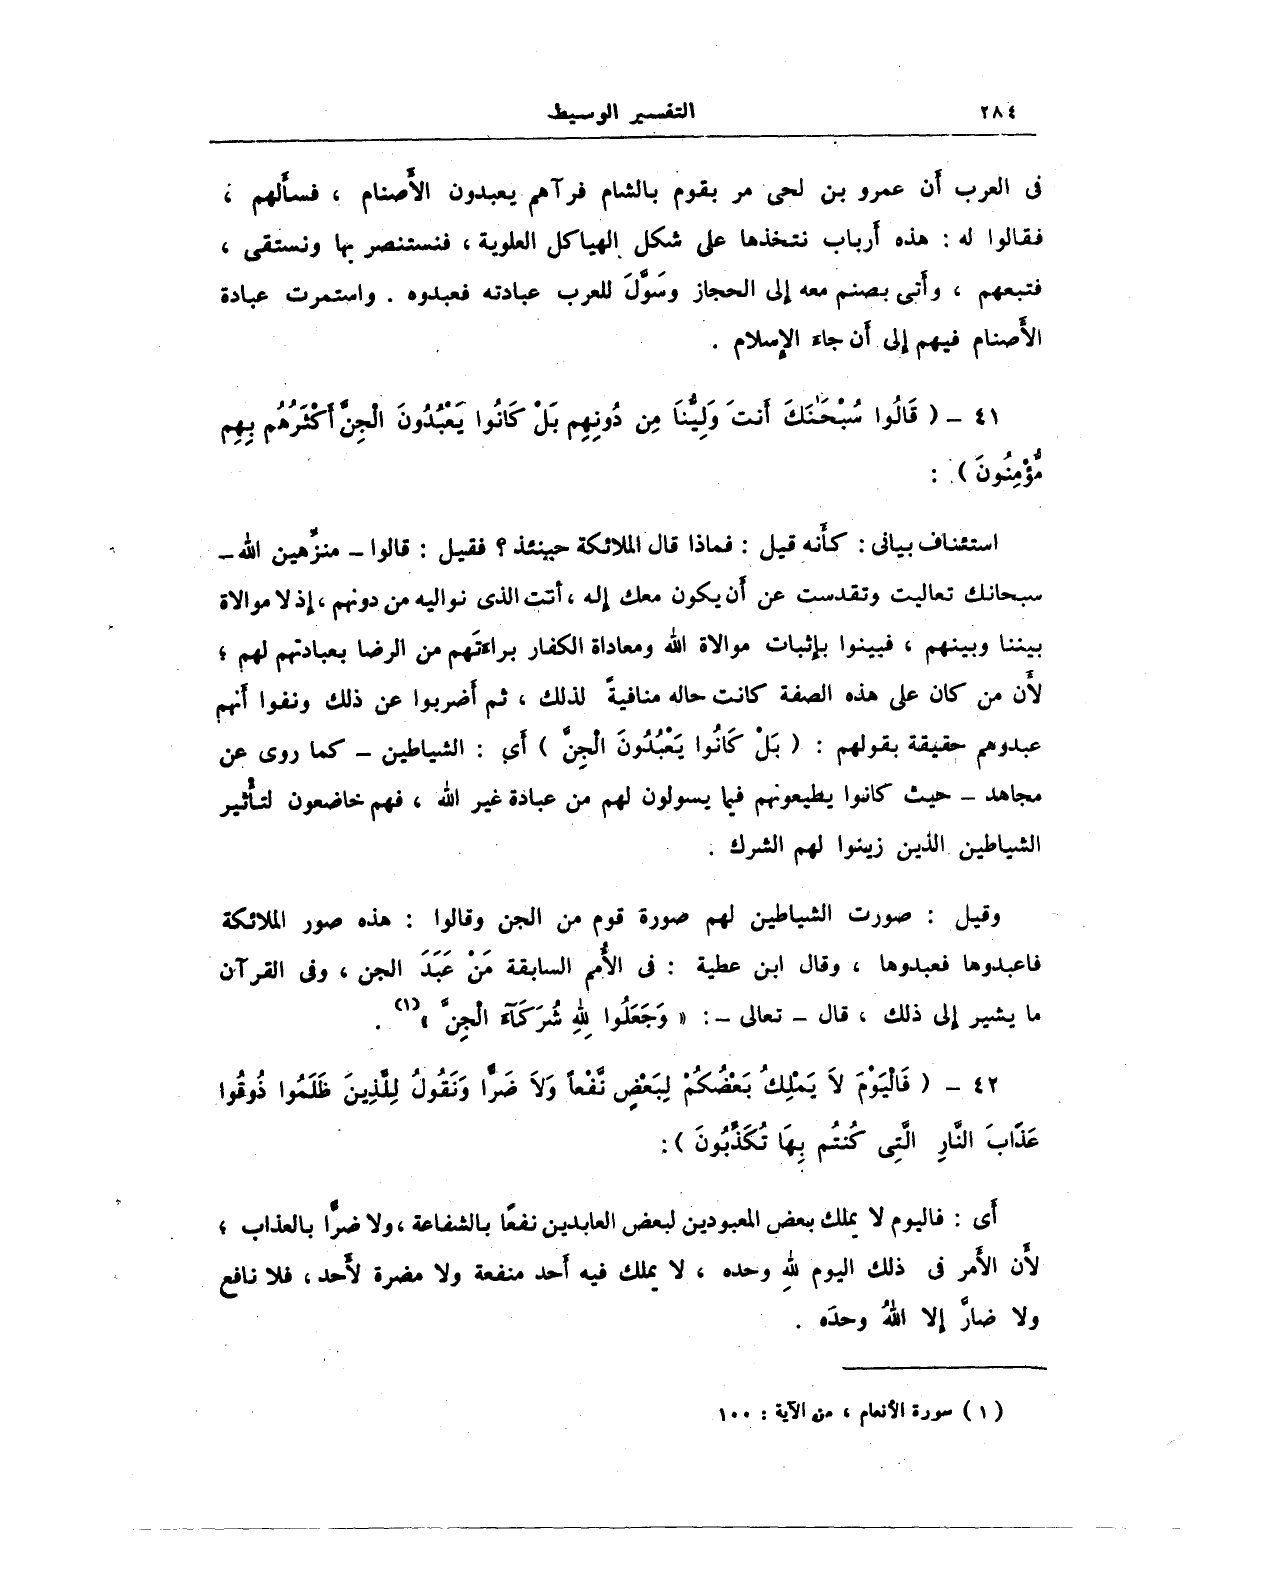 ٢٨٤
التفسير الوسيط
فى العرب أن عمرو بن لحى مر بقوم بالشام فرآهم يعبدون الأصنام ، فسألهم ،
فقالوا له : هذه أرباب نتخذها على شكل الهياكل العلوية ، فنستنصر بها ونستقى ،
فتبعهم ، وأتى بصنم معه إلى الحجاز وسَوَّلَ للعرب عبادته فعبدوه . واستمرت عبادة
الأصنام فيهم إلى أن جاء الإسلام .
٤١ – ( قَالُوا سُبْحَٰنَكَ أَنتَ وَلِيُّنَا مِن دُونِهِم بَلْ كَانُوا يَعْبُدُونَ الْجِنَّ أَكْثَرُهُم بِهِم
مُّؤْمِنُونَ ) :
استئناف بيانى : كأنه قيل : فماذا قال الملائكة حينئذ ؟ فقيل : قالوا – منزِّهين الله –
سبحانك تعاليت وتقدست عن أن يكون معك إله ، أنت الذى نواليه من دونهم ، إذ لا موالاة
بيننا وبينهم ، فبينوا بإثبات موالاة الله ومعاداة الكفار براءتَهم من الرضا بعبادتهم لهم ؛
لأن من كان على هذه الصفة كانت حاله منافيةً لذلك ، ثم أضربوا عن ذلك ونفوا أنهم
عبدوهم حقيقة بقولهم : ( بَلْ كَانُوا يَعْبُدُونَ الْجِنَّ ) أى : الشياطين – كما روى عن
مجاهد – حيث كانوا يطيعونهم فيما يسولون لهم من عبادة غير الله ، فهم خاضعون لتأثير
الشياطين الذين زينوا لهم الشرك .
وقيل : صورت الشياطين لهم صورة قوم من الجن وقالوا : هذه صور الملائكة
فاعبدوها فعبدوها ، وقال ابن عطية : فى الأُمم السابقة مَنْ عَبَدَ الجن ، وفى القرآن
ما يشير إلى ذلك ، قال – تعالى – : « وَجَعَلُوا لِلهِ شُرَكَآءَ الْجِنَّ »(١) .
٤٢ – ( فَالْيَوْمَ لاَ يَمْلِكُ بَعْضُكُمْ لِبَعْضٍ نَّفْعاً وَلاَ ضَرًّا وَنَقُولُ لِلَّذِينَ ظَلَمُوا ذُوقُوا
عَذَابَ النَّارِ الَّتِى كُنتُم بِهَا تُكَذِّبُونَ ) :
أى : فاليوم لا يملك بعض المعبودين لبعض العابدين نفعًا بالشفاعة ، ولا ضرًّا بالعذاب ؛
لأن الأمر فى ذلك اليوم للهِ وحده ، لا يملك فيه أحد منفعة ولا مضرة لأحد ، فلا نافع
ولا ضارَّ إلا اللهُ وحدَه .
( ١ ) سورة الأنعام ، من الآية : ١٠٠